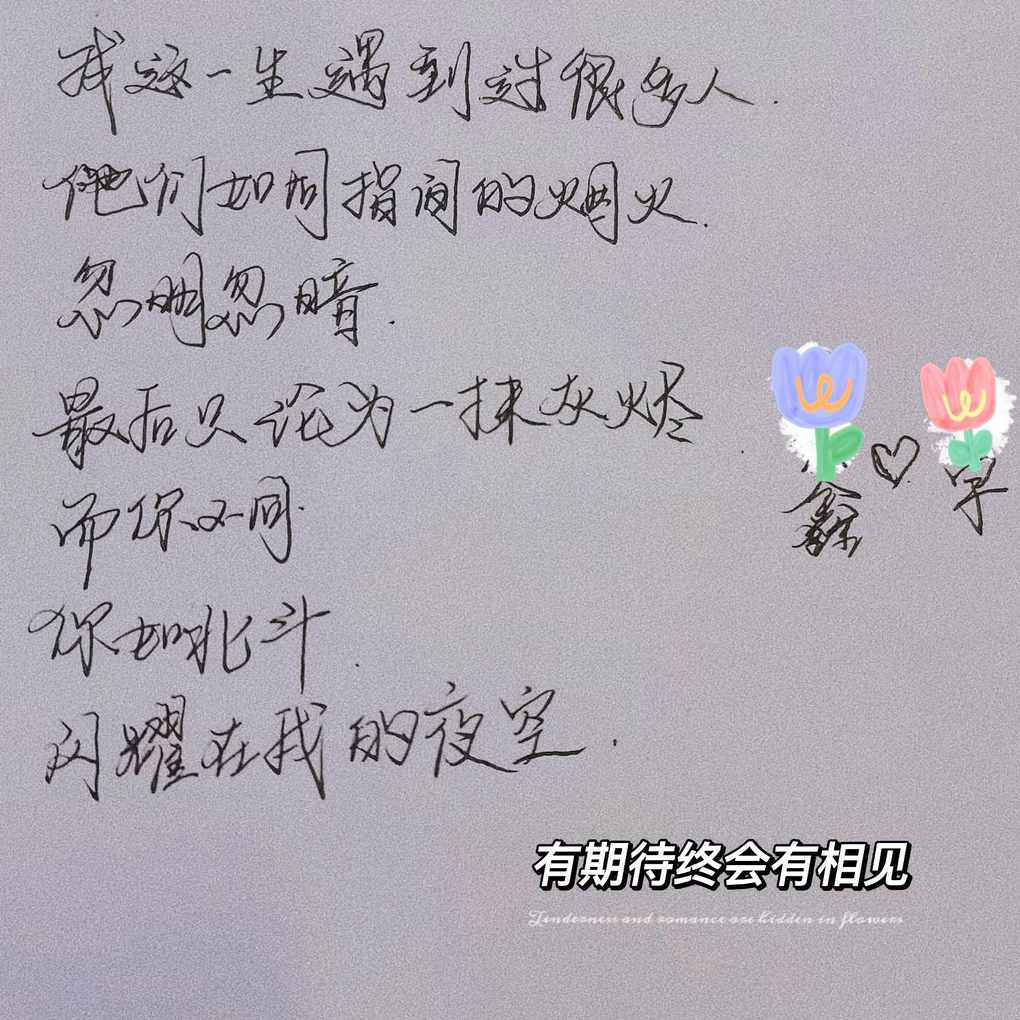 我这一生遇到过很多人.
他们如同指间的烟火.
忽明忽暗.
最后只沦为一抹灰烬
而你不同.
你如北斗.
闪耀在我的夜空.
鑫♡
有期待终会有相见
Tenderness and romance are hidden in flowers